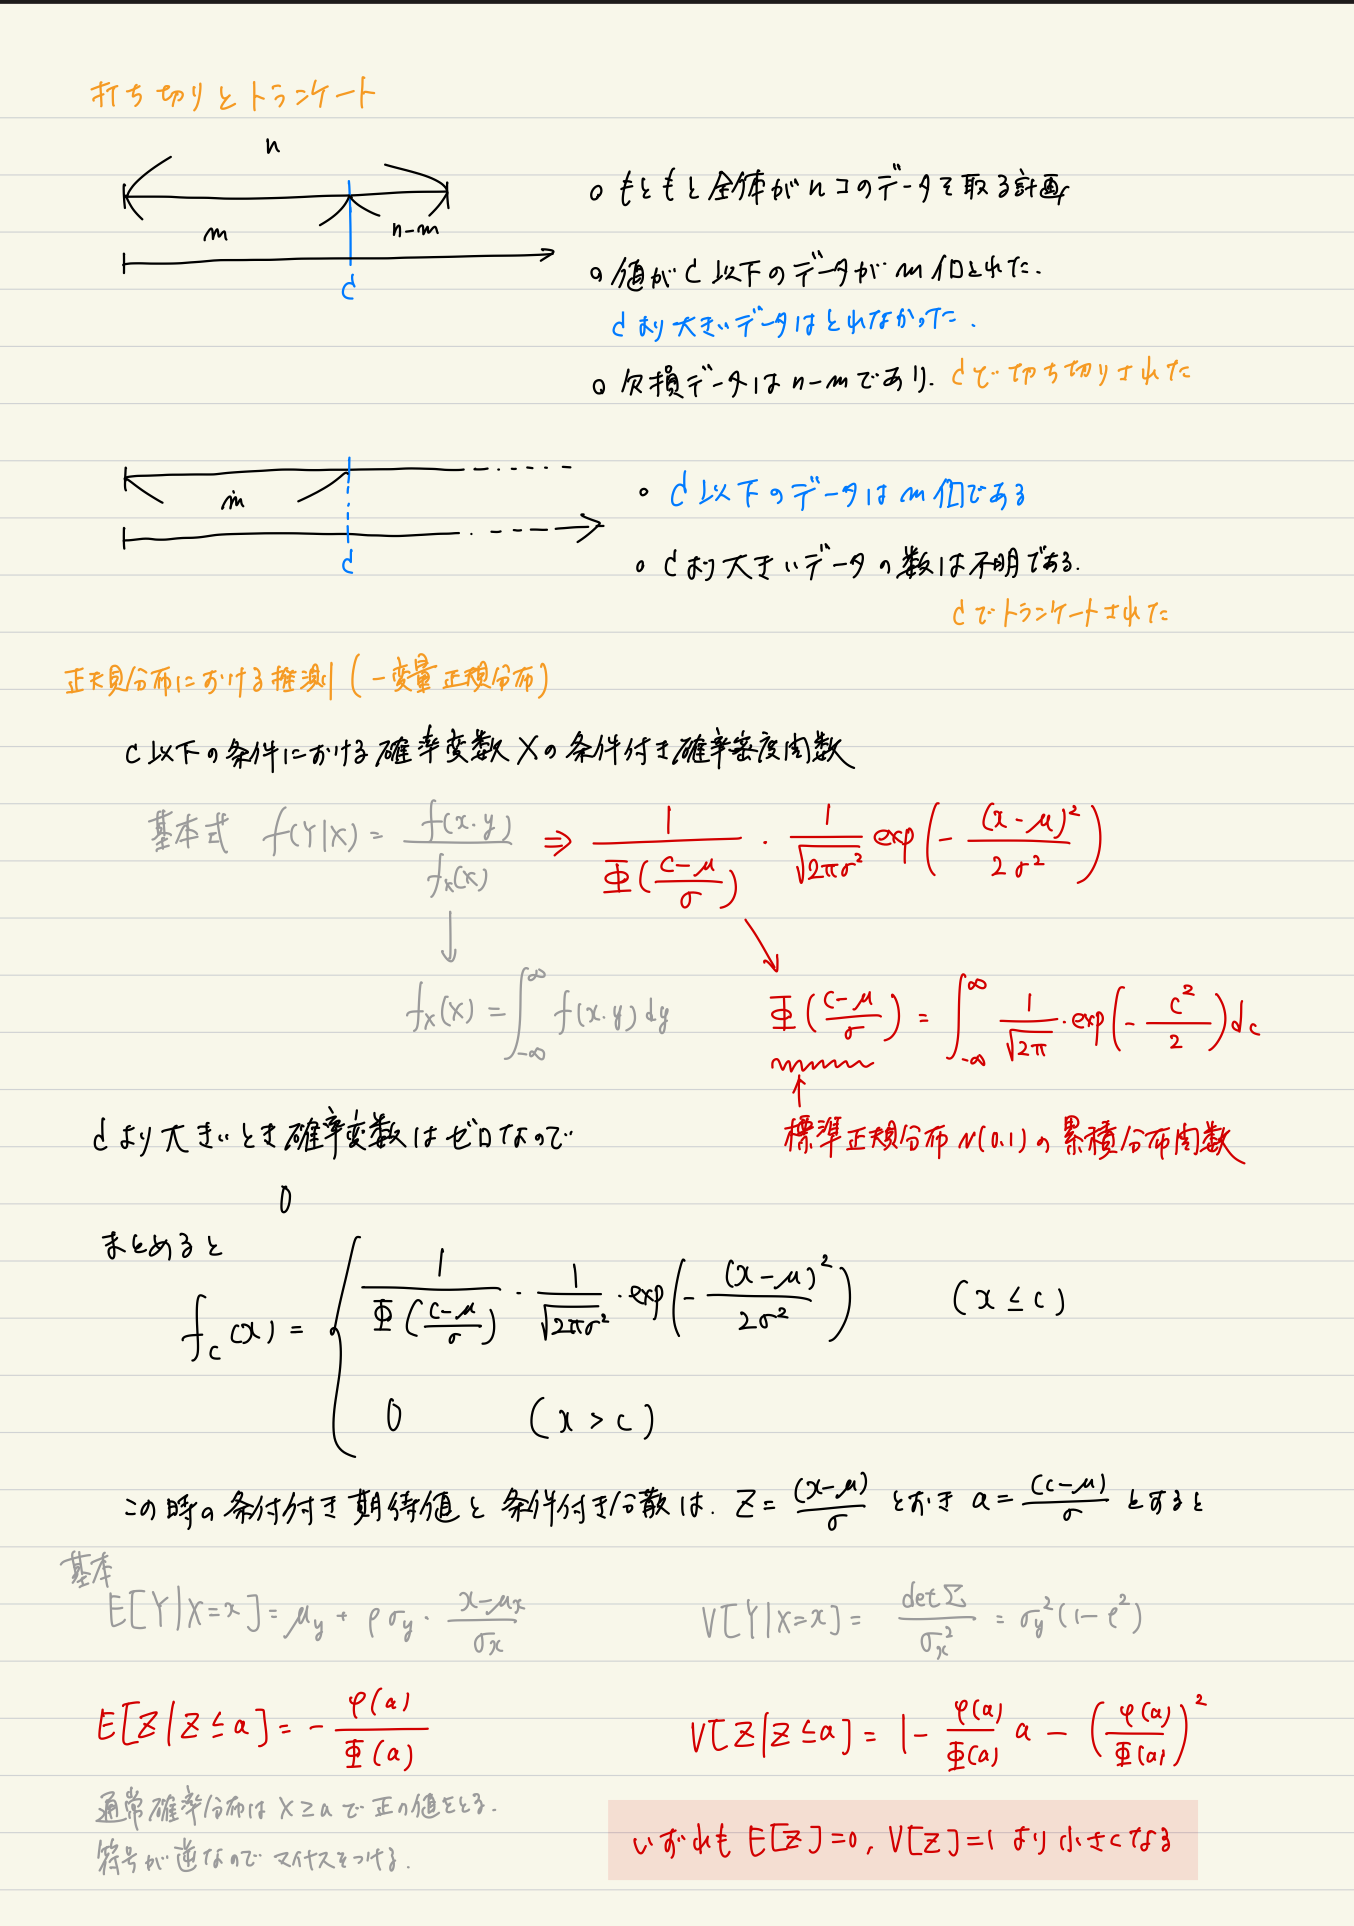 打ち切りとトランケート
n
m n-m
c
○ もともと全体がnコのデータを取る計画
○ 値がC以下のデータがm個とれた.
cより大きいデータはとれなかった.
○ 欠損データはn-mであり. cで切ち切りされた
m
c
○ c以下のデータはm個である
○ cより大きいデータの数は不明である.
cでトランケートされた
正規分布における推測 (一変量正規分布)
C以下の条件における確率変数Xの条件付き確率密度関数
基本式 f(Y|X) = f(x.y) / fx(x) ⇒ 1 / Φ((c-μ)/σ) · 1/√2πσ² exp(- (x-μ)² / 2σ²)
↓
fx(x) = ∫_{-∞}^{∞} f(x.y) dy
Φ((c-μ)/σ) = ∫_{-∞}^{∞} 1/√2π · exp(- c²/2) dc
↑
標準正規分布N(0.1)の累積分布関数
cより大きいとき確率変数はゼロなので
0
まとめると
f_c(x) = { 1 / Φ((c-μ)/σ) · 1/√2πσ² · exp(- (x-μ)² / 2σ²) (x ≤ c)
0 (x > c)
この時の条件付き期待値と条件付き分散は. Z = (x-μ)/σ とおき a = (c-μ)/σ とすると
基本
E[Y|X=x] = μy + ρσy · (x-μx)/σx
V[Y|X=x] = detΣ/σx² = σy²(1-ρ²)
E[Z|Z≤a] = - φ(a)/Φ(a)
V[Z|Z≤a] = 1 - φ(a)/Φ(a) a - (φ(a)/Φ(a))²
通常確率分布はX≥aで正の値をとる.
符号が逆なのでマイナスをつける.
いずれも E[Z]=0, V[Z]=1 より小さくなる